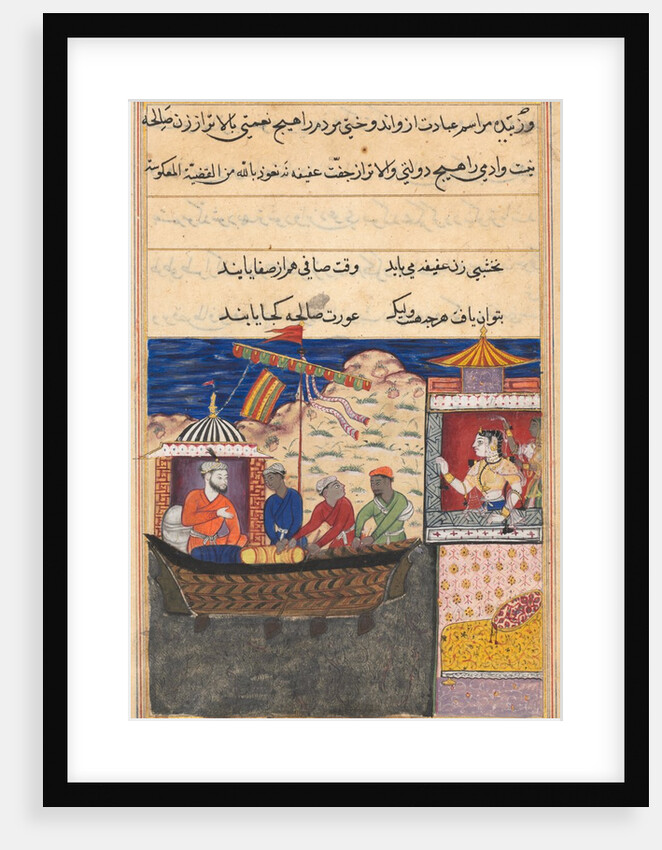 ورزیده مراسم عبادت از واند وختی مردم را هیچ نعمتی بالاتر از زن صالحه
بنت وادمی را هیچ دولتی والاتر از جفت عفیفه نه نعوذ بالله من القضیة المعکوسة
نخشبی زن عفیفه می باید وقت صافی هم از صفا یابند
بتوان یافت هرچه هست ولیک عورت صالحه کجا یابند